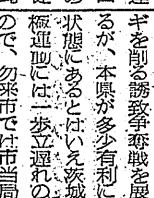 ギを削る誘致争奪戦を展
るが、本県が多少有利に
状態にあるとはいえ茨城
極運動には一歩立遅れの
ので、勿来市では市当局